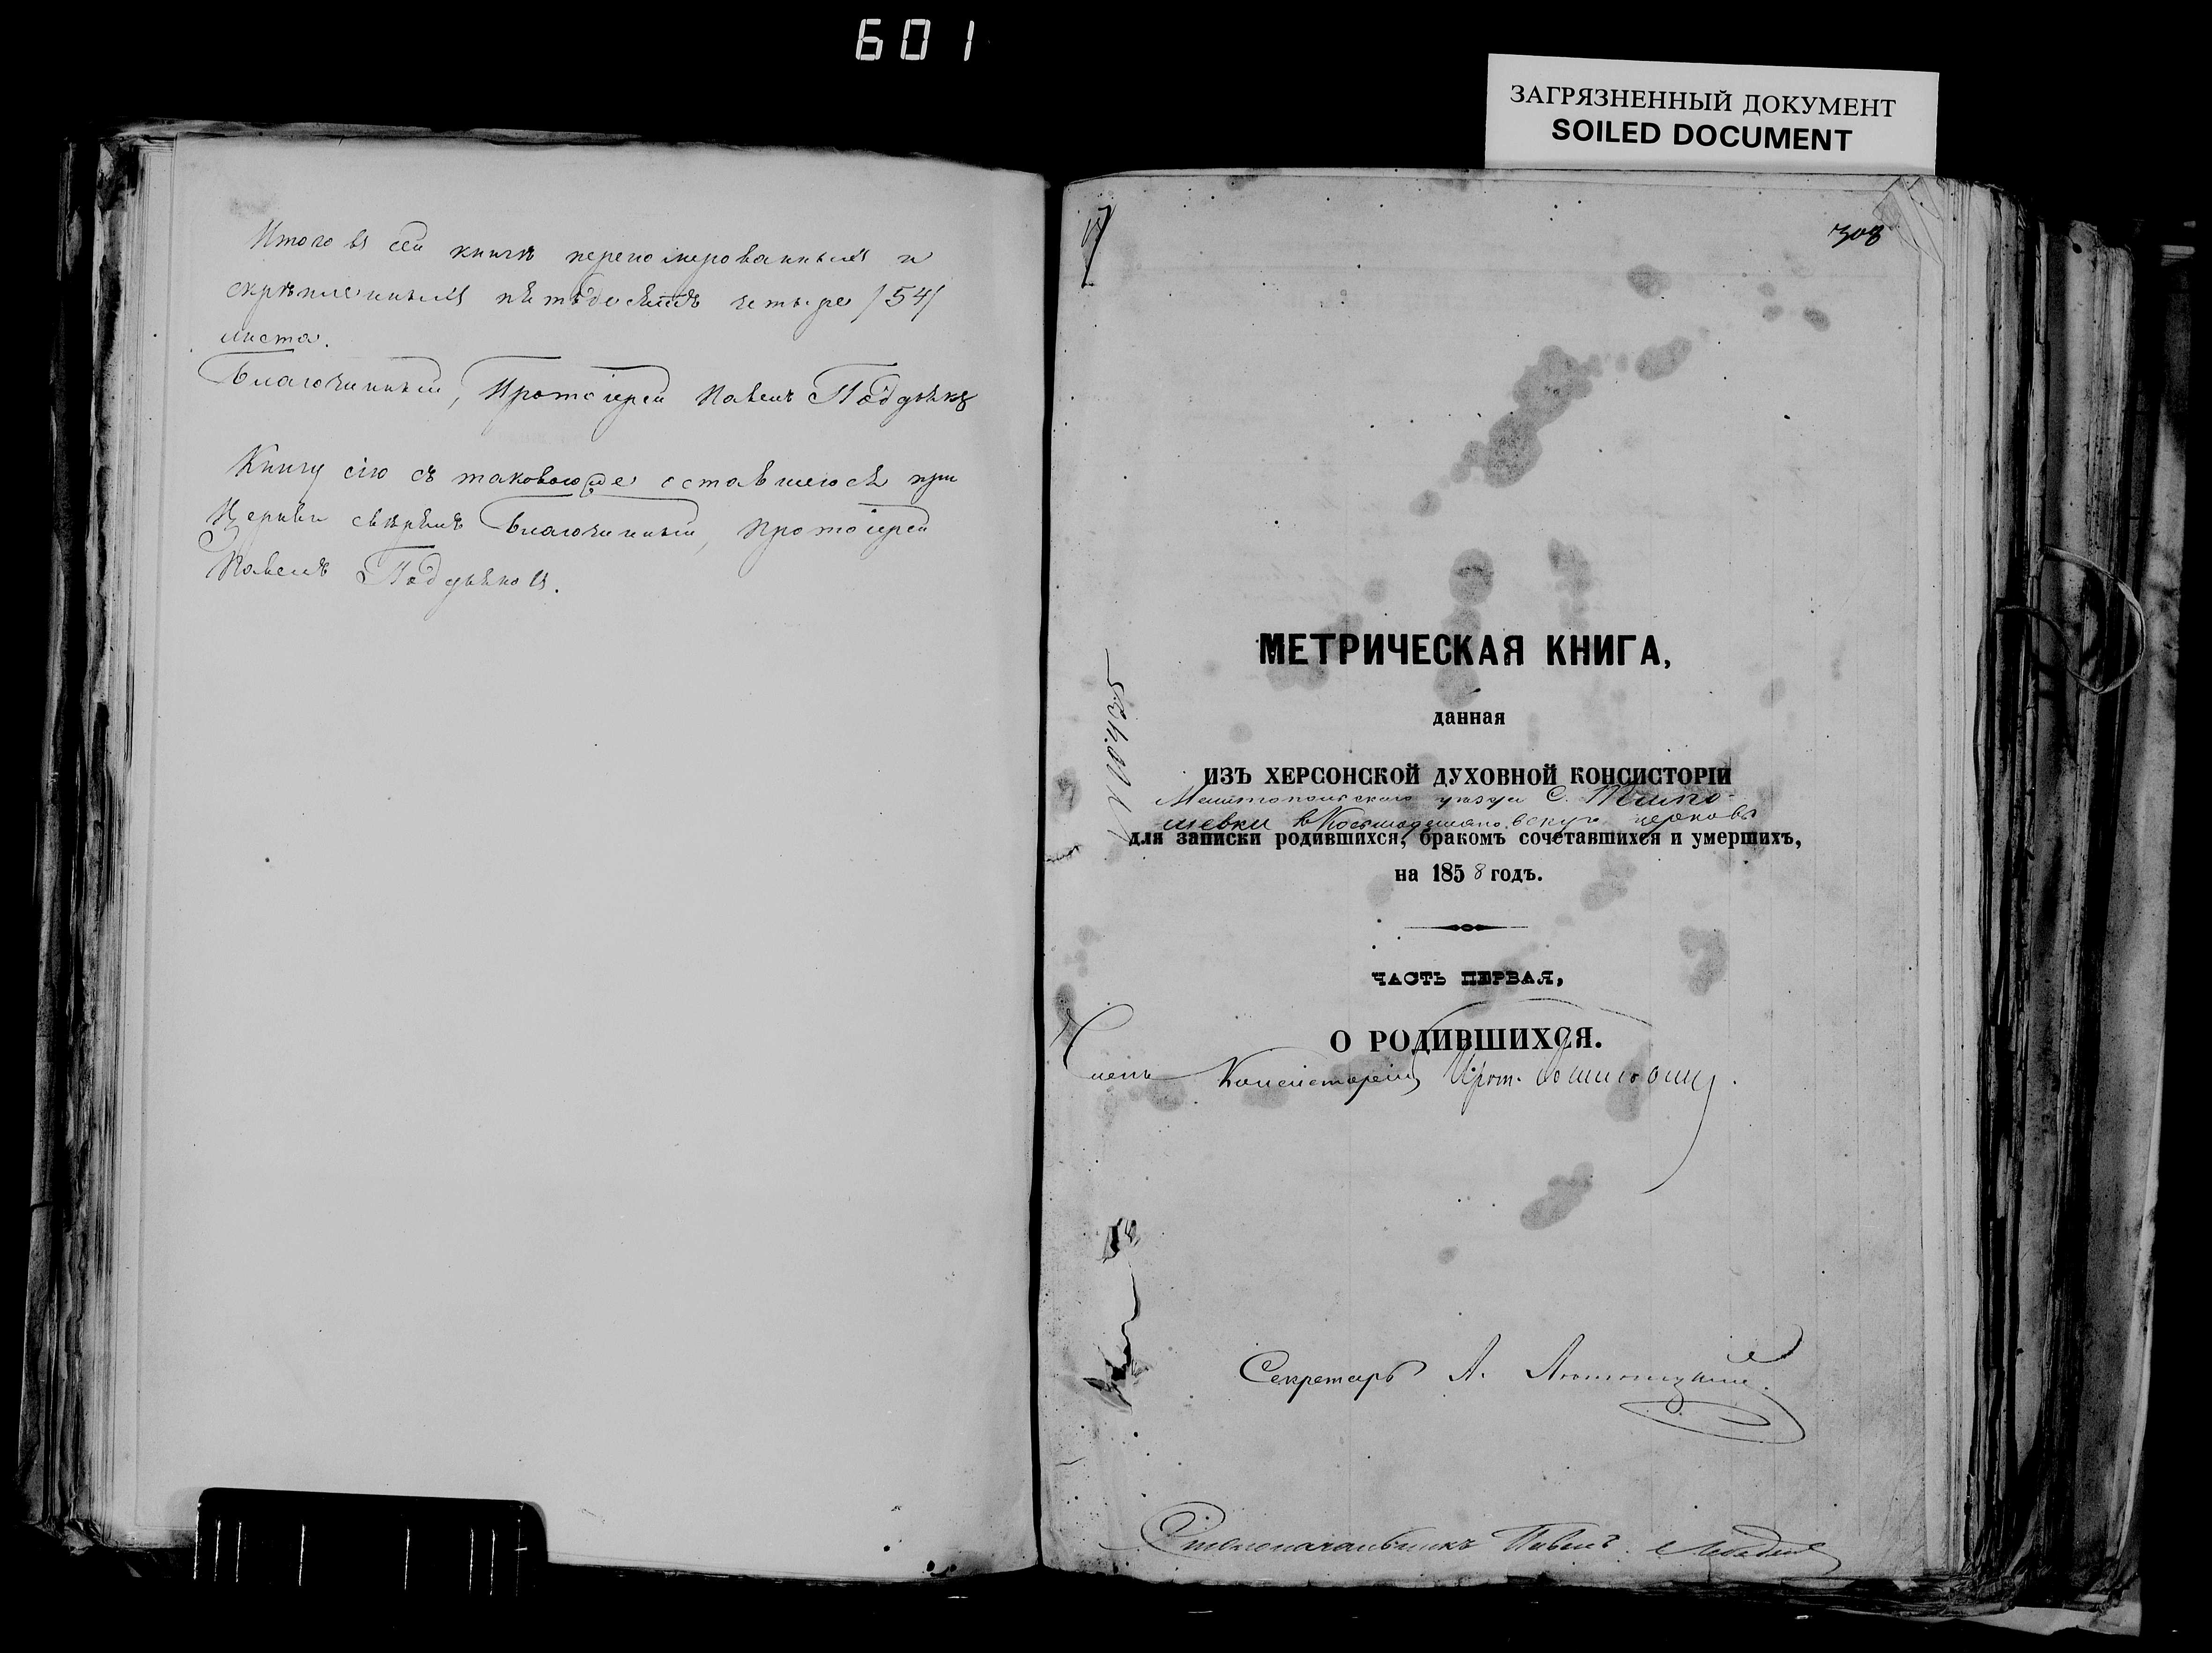 601
ЗАГРЯЗНЕННЫЙ ДОКУМЕНТ
SOILED DOCUMENT
Итого въ сей книгѣ перенумерованныхъ и
скрѣпленныхъ пятьдесятъ четыре /54/
листа.
Благочинный, Протоіерей Павелъ
Книгу сію съ таковоюже оставшеюся при
Церкви свѣрялъ Благочинный, Протоіерей
Павелъ
308
МЕТРИЧЕСКАЯ КНИГА,
данная
ИЗЪ ХЕРСОНСКОЙ ДУХОВНОЙ КОНСИСТОРІИ
Мелитопольскаго уѣзда С. Тимо-
шевки въ Косьмодемьяновскую церковь
для записки родившихся, бракомъ сочетавшихся и умершихъ,
на 1858 годъ.
ЧАСТЬ ПЕРВАЯ,
О РОДИВШИХСЯ.
Членъ Консисторіи Прот.
Секретарь А.
Столоначальникъ Павелъ